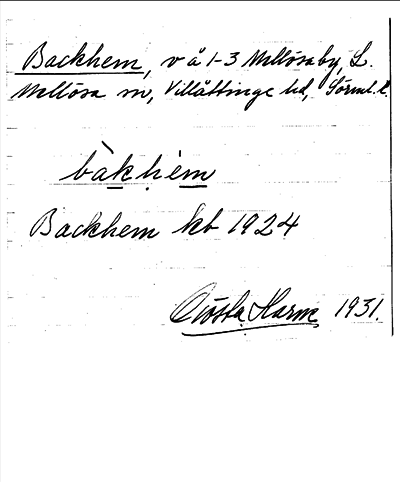 Backhem, v å 1-3 Mellösaby, L.
Mellösa sn, Villåttinge hd, Sörml. l.
bàkhém
Backhem kb 1924
Gösta Harme 1931.